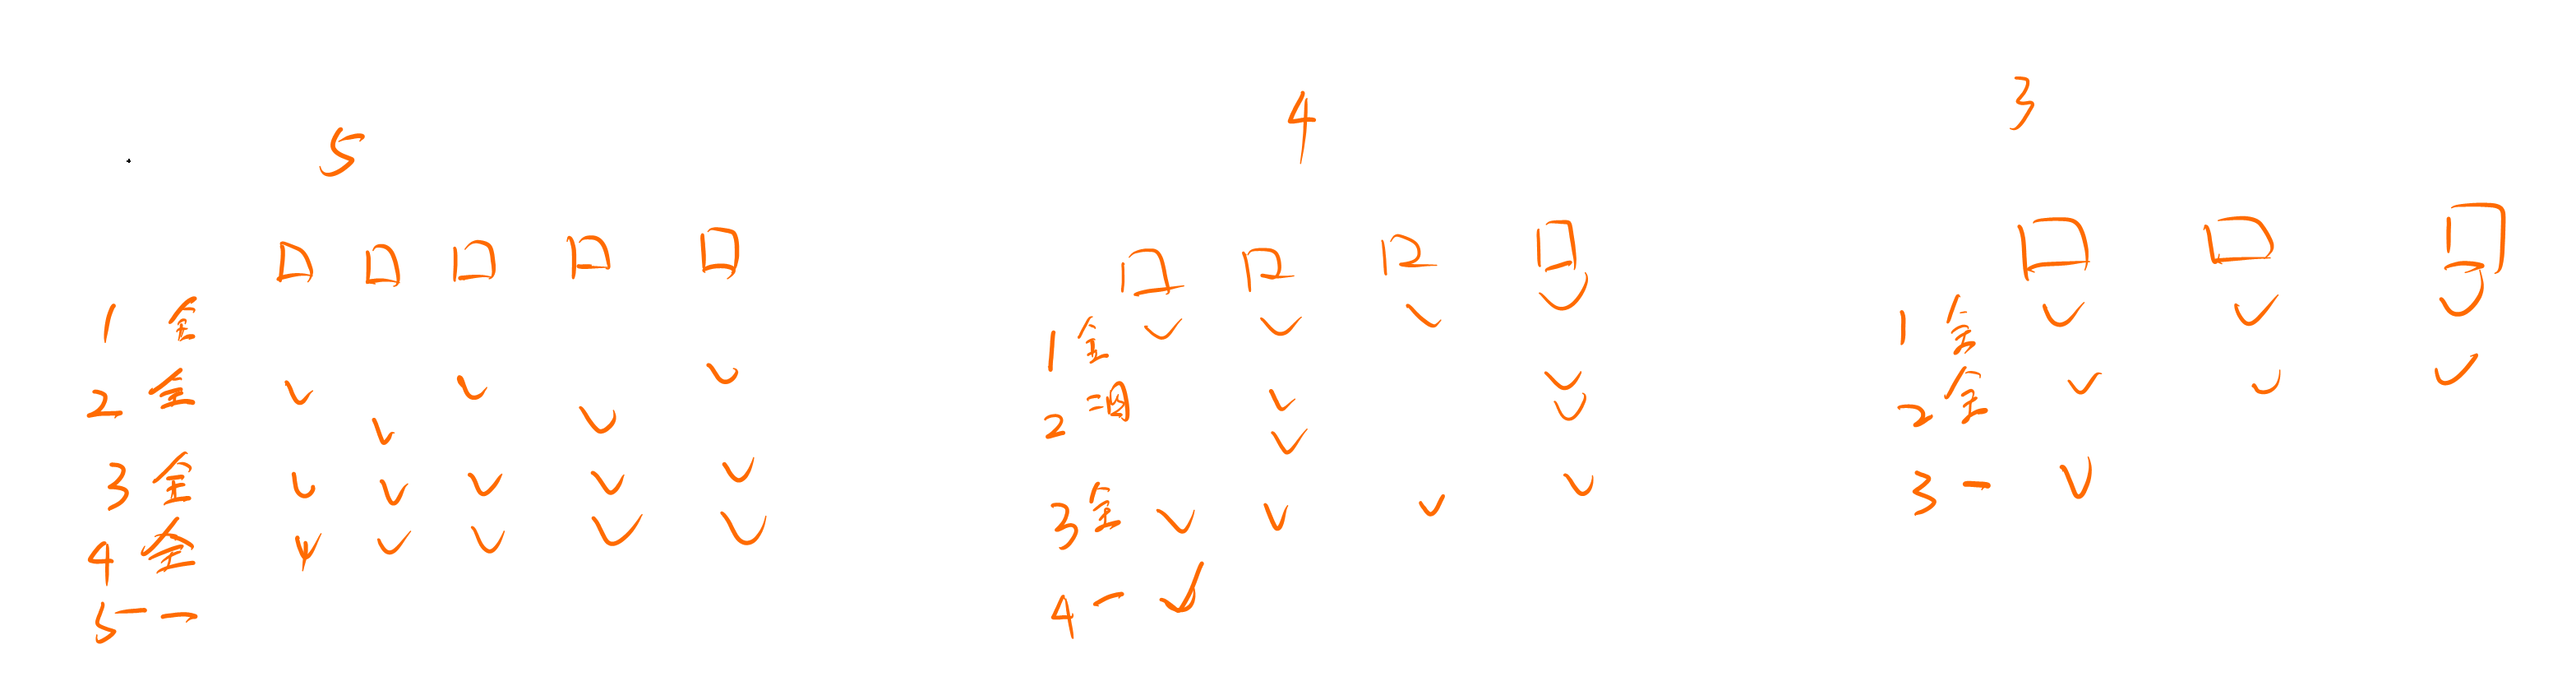 5
1 全
2 全
3 全
4 全
5 一 一
4
1 全
2
3 全
4 一
3
1 全
2 全
3 一